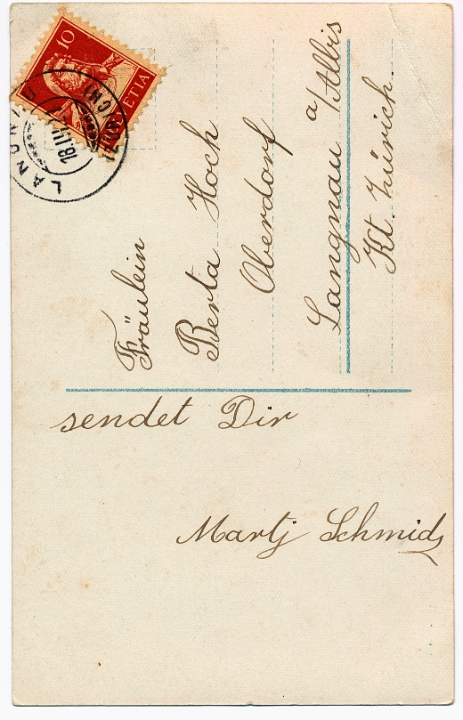 10
HELVETIA
Fräulein
Berta Hoch
Oberdorf
Langnau a/Albis
Kt. Zürich.
sendet Dir
Martj Schmid